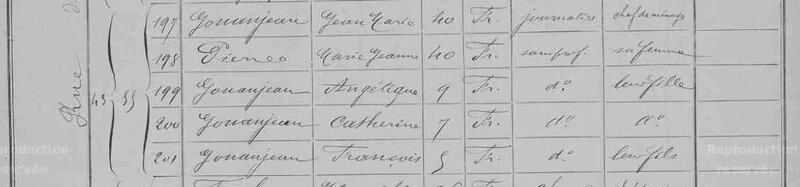 Rue
43 55
197 Gouanjean Jean Marie 40 Fr. journalier chef de ménage
198 Marie Jeanne 40 Fr. sans prof. sa femme
199 Gouanjean Angélique 9 Fr. do leur fille
200 Gouanjean Catherine 7 Fr. do do
201 Gouanjean François 5 Fr. do leur fils
Reproduction réservée
Reproduction réservée